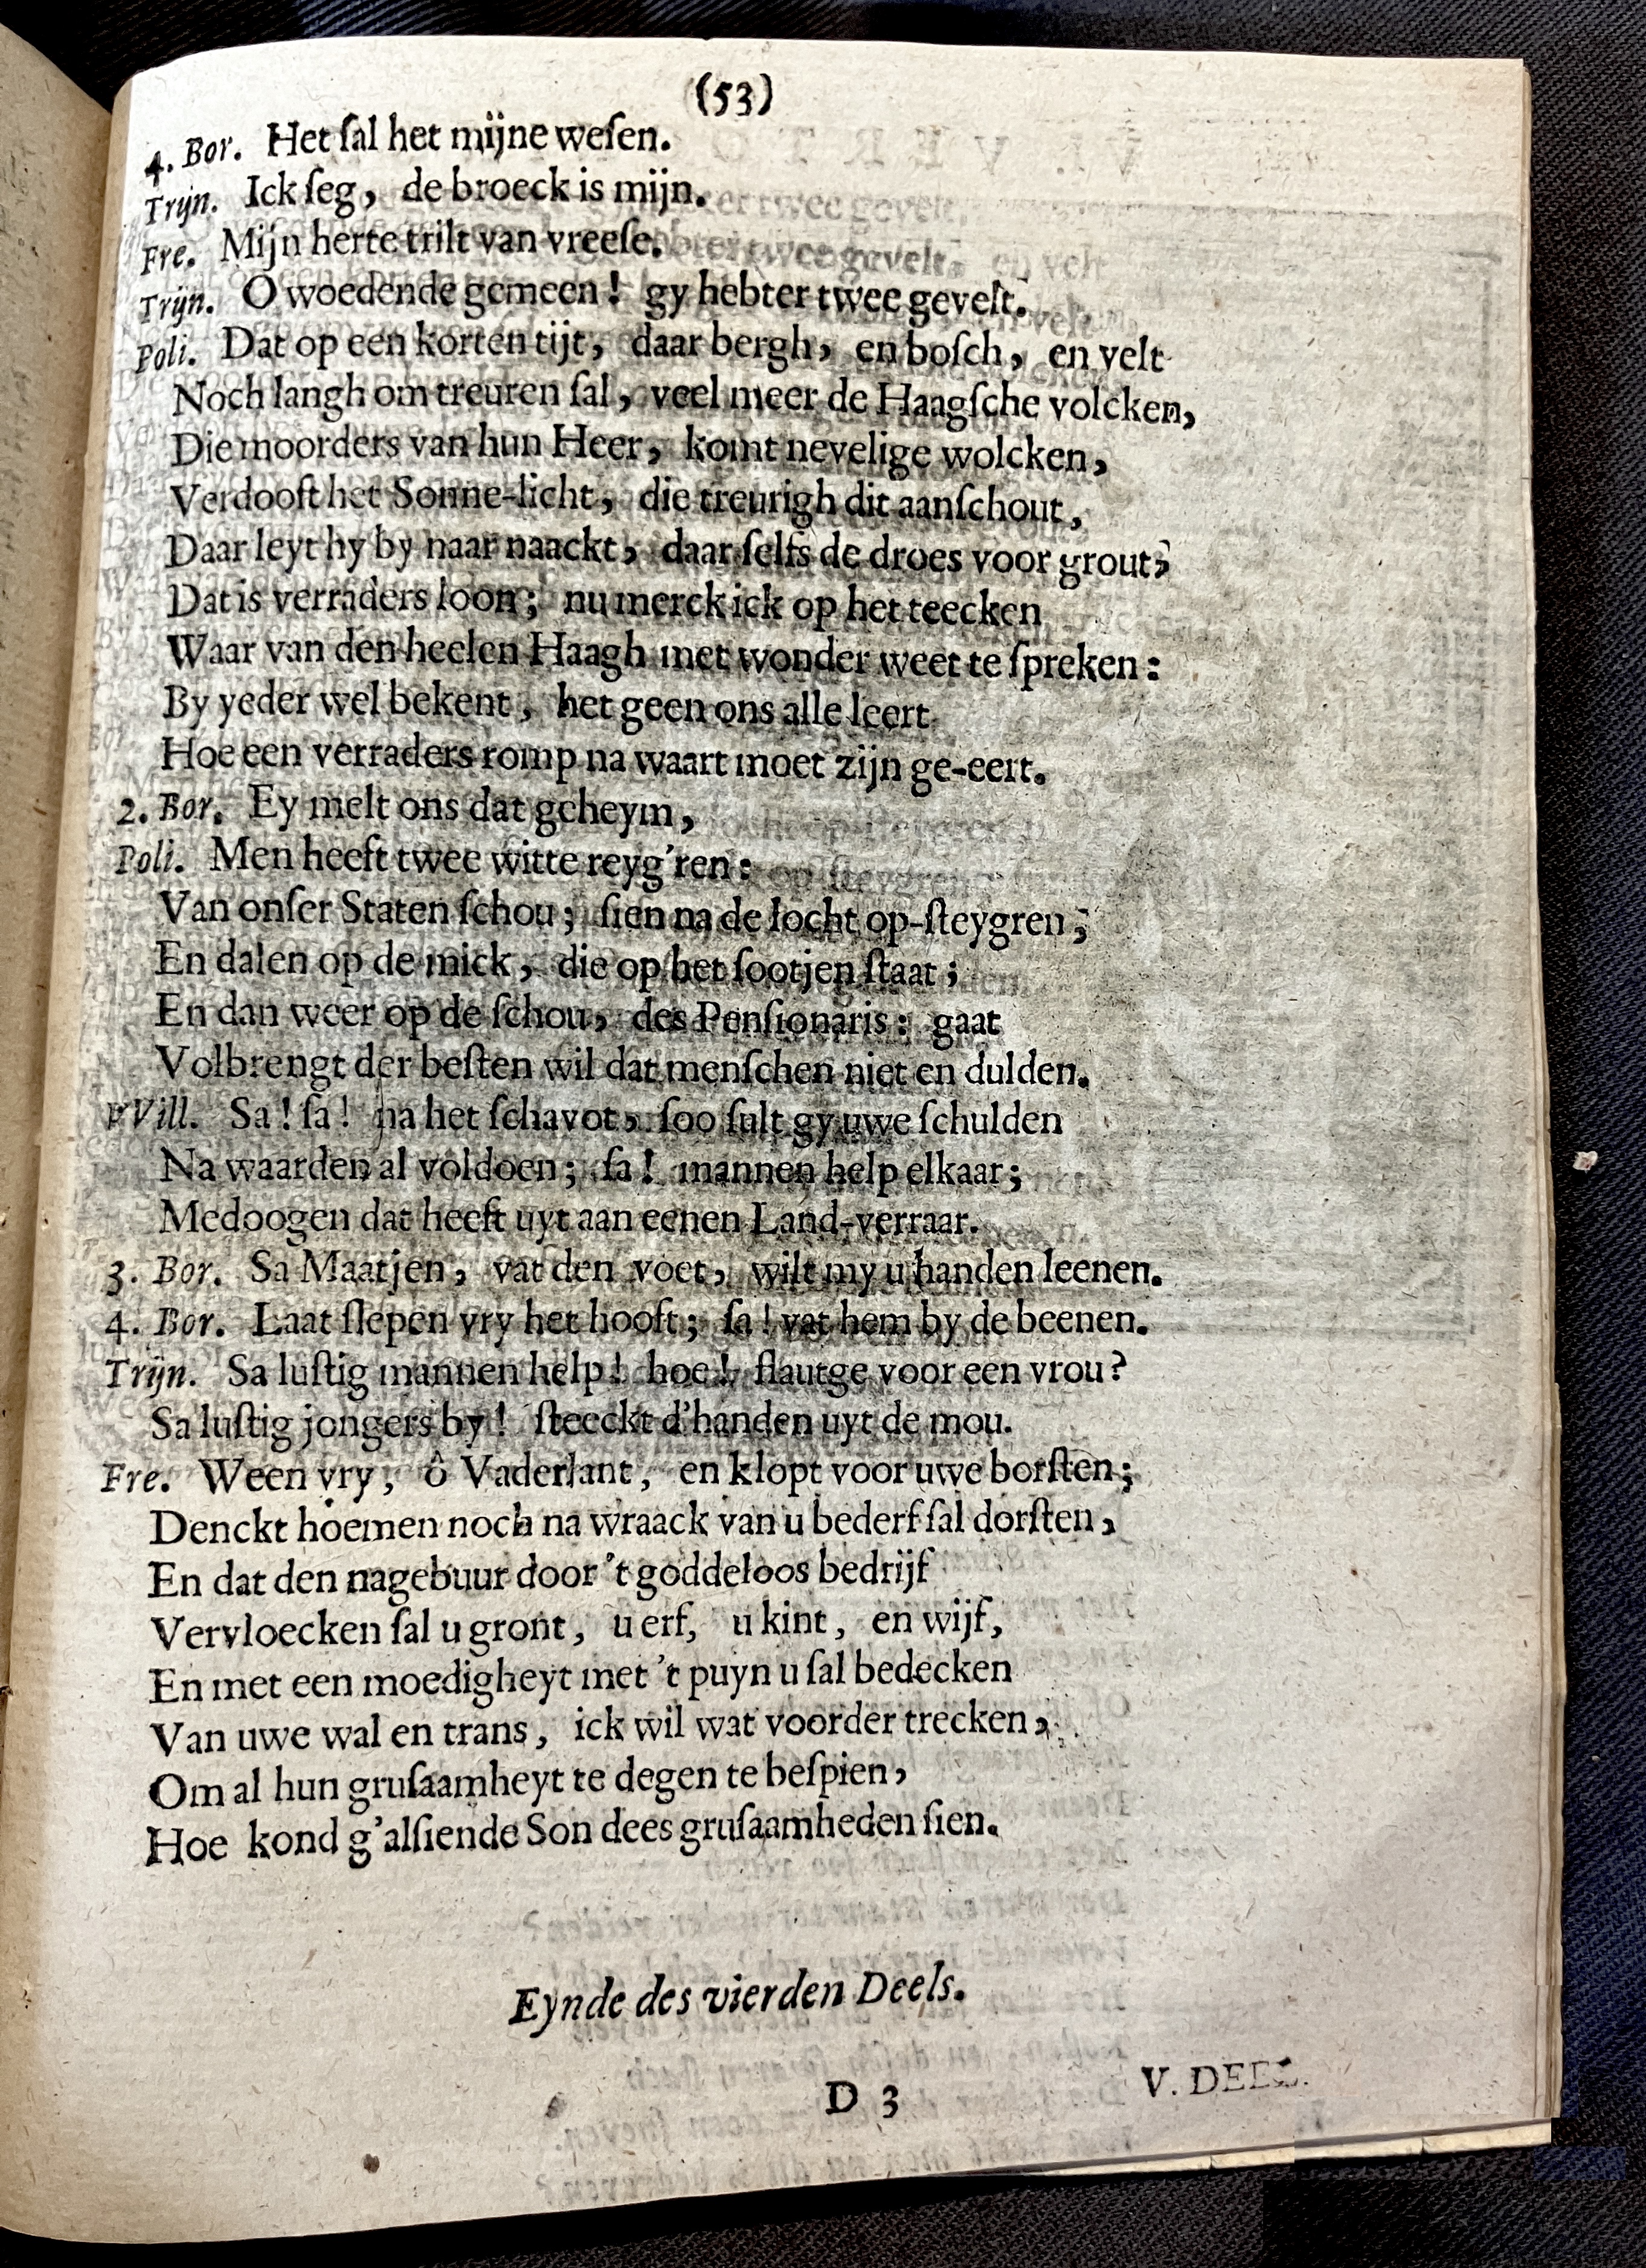 (53)
4. Bor. Het ſal het mijne weſen.
Trijn. Ick ſeg, de broeck is mijn.
Fre. Mijn herte trilt van vreeſe.
Trijn. O woedende gemeen! gy hebter twee gevelt.
Poli. Dat op een korten tijt, daar bergh, en boſch, en velt
Noch langh om treuren ſal, veel meer de Haagſche volcken,
Die moorders van hun Heer, komt nevelige wolcken,
Verdooft het Sonne-licht, die treurigh dit aanſchout,
Daar leyt hy by naar naackt, daar ſelfs de droes voor grout;
Dat is verraders loon; nu merck ick op het teecken
Waar van den heelen Haagh met wonder weet te ſpreken:
By yeder wel bekent, het geen ons alle leert
Hoe een verraders romp na waart moet zijn ge-eert.
2. Bor. Ey melt ons dat geheym,
Poli. Men heeft twee witte reyg'ren:
Van onſer Staten ſchou; ſien na de locht op-ſteygren;
En dalen op de mick, die op het ſootjen ſtaat;
En dan weer op de ſchou, des Penſionaris: gaat
Volbrengt der beſten wil dat menſchen niet en dulden.
VVill. Sa! ſa! na het ſchavot, ſoo ſult gy uwe ſchulden
Na waarden al voldoen; ſa! mannen help elkaar;
Medoogen dat heeft uyt aan eenen Land-verraar.
3. Bor. Sa Maatjen, vat den voet, wilt my u handen leenen.
4. Bor. Laat ſlepen vry het hooft; ſa! vat hem by de beenen.
Trijn. Sa luſtig mannen help! hoe! flautge voor een vrou?
Sa luſtig jongers by! ſteeckt d'handen uyt de mou.
Fre. Ween vry, ô Vaderlant, en klopt voor uwe borſten;
Denckt hoemen noch na wraack van u bederf ſal dorſten,
En dat den nagebuur door 't goddeloos bedrijf
Vervloecken ſal u gront, u erf, u kint, en wijf,
En met een moedigheyt met 't puyn u ſal bedecken
Van uwe wal en trans, ick wil wat voorder trecken,
Om al hun gruſaamheyt te degen te beſpien,
Hoe kond g'alſiende Son dees gruſaamheden ſien.
Eynde des vierden Deels.
D 3
V. DEEL.